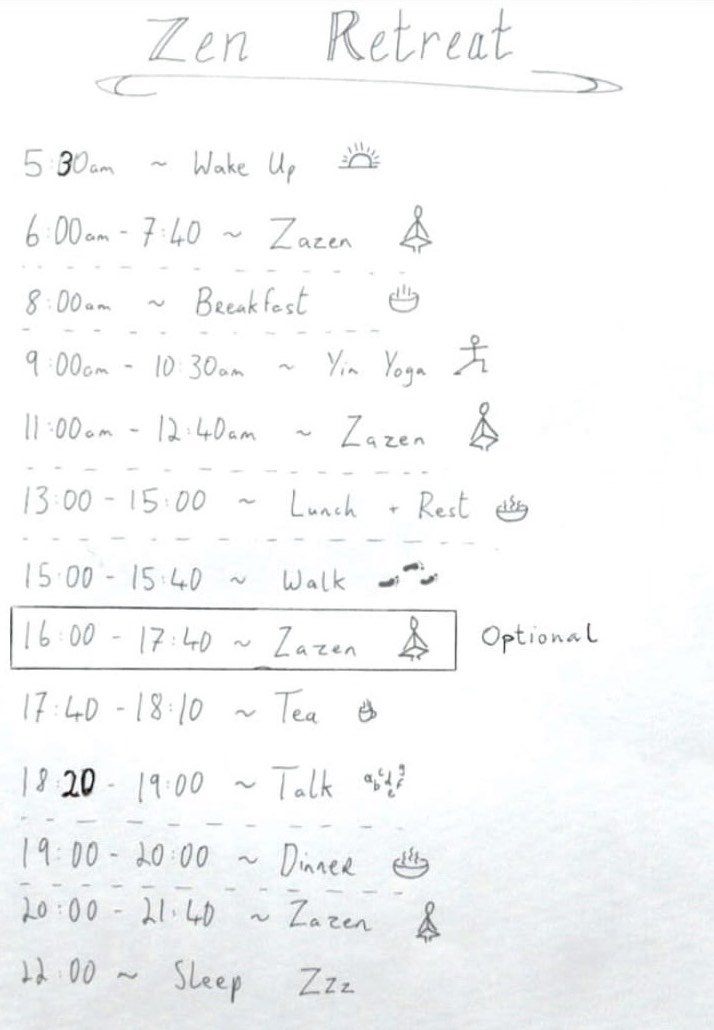 Zen Retreat
5:30am ~ Wake Up
6:00am - 7:40 ~ Zazen
8:00am ~ Breakfast
9:00am - 10:30am ~ Yin Yoga
11:00am - 12:40am ~ Zazen
13:00 - 15:00 ~ Lunch + Rest
15:00 - 15:40 ~ Walk
16:00 - 17:40 ~ Zazen Optional
17:40 - 18:10 ~ Tea
18:20 - 19:00 ~ Talk abcdefg
19:00 - 20:00 ~ Dinner
20:00 - 21:40 ~ Zazen
22:00 ~ Sleep Zzz